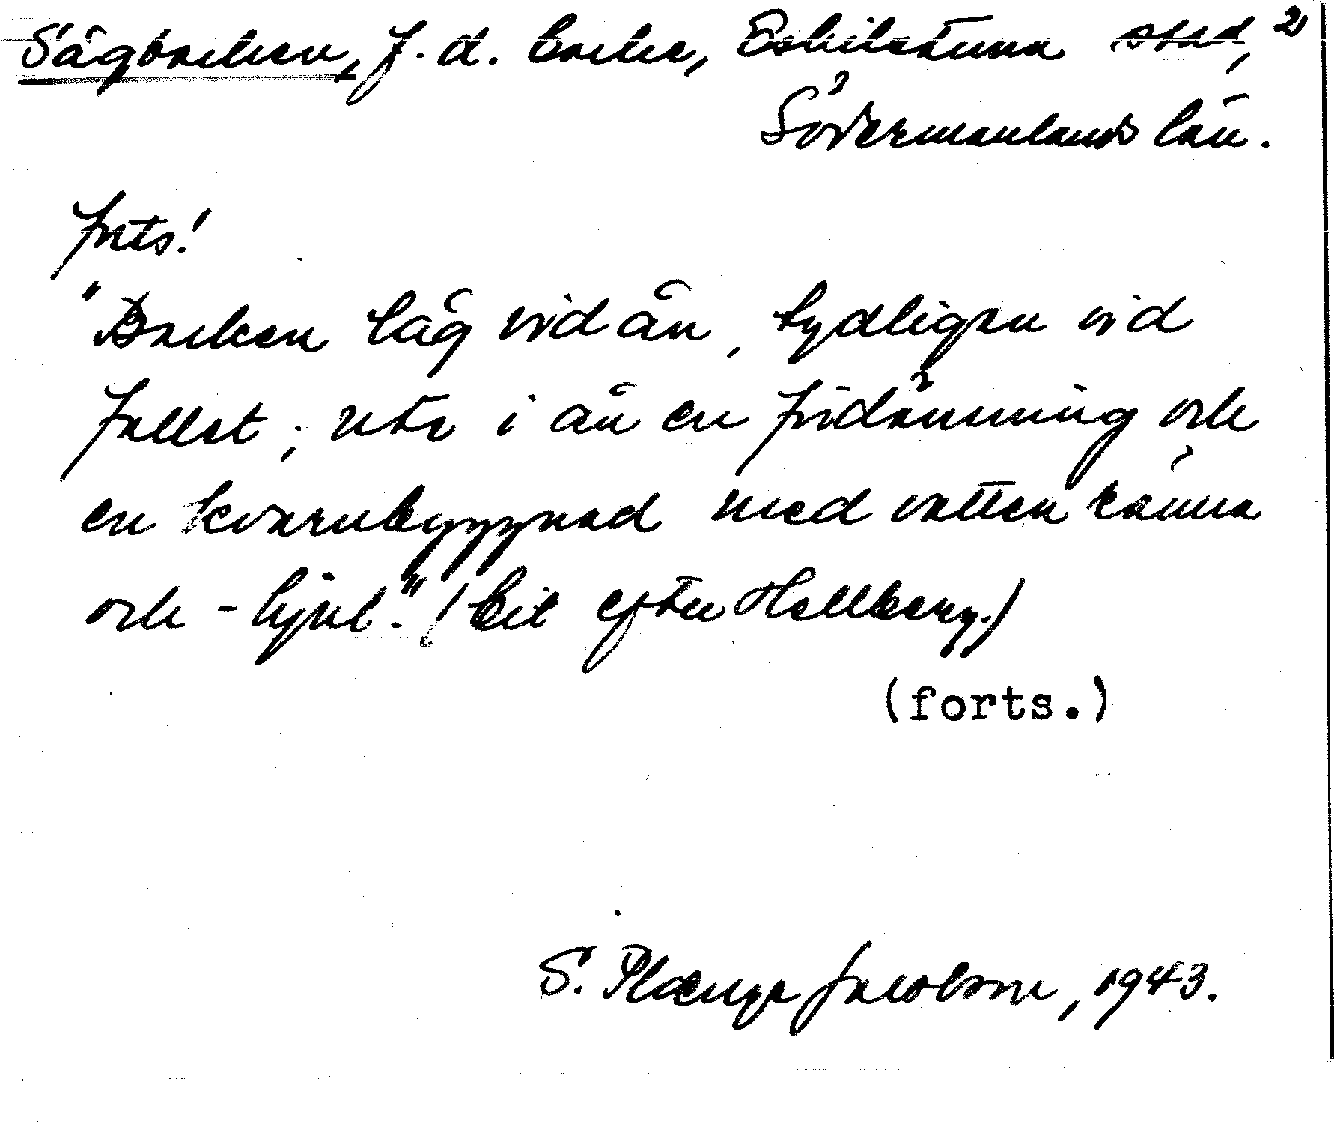 Sågbacken, f. d. backe, Eskilstuna stad, 2)
Södermanlands län.
forts!
"Backen låg vid ån, tydligen vid
fallet; ute i ån en fördämning och
en kvarnbyggnad med vattenränna
och -hjul". (Cit efter Hellberg.)
(forts.)
S. Plænge Jacobson, 1943.